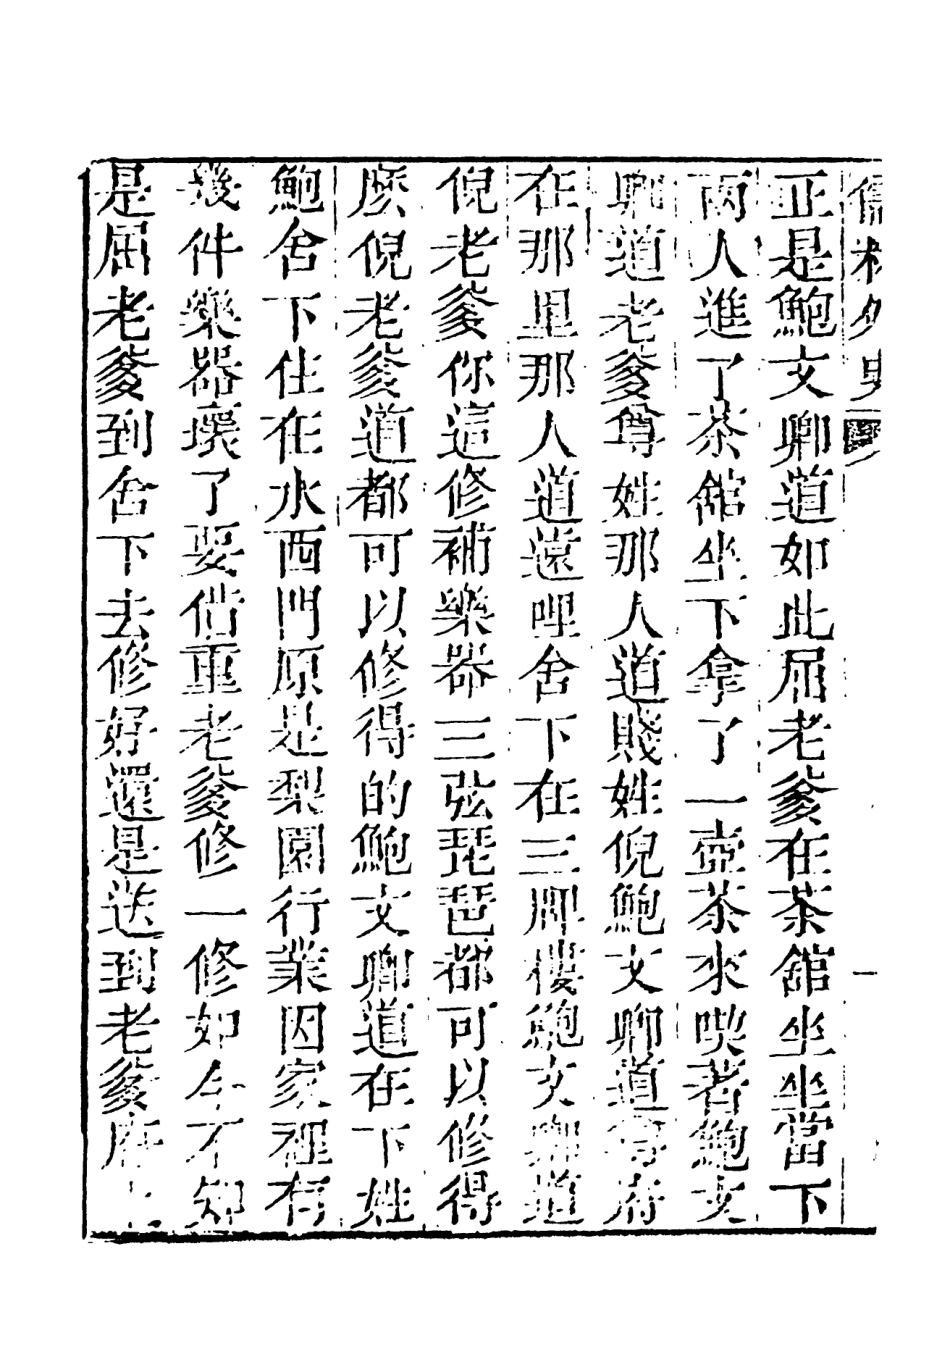 儒林外史
正是鮑文卿道如此屈老爹在茶館坐坐當下
兩人進了茶館坐下拿了一壺茶來喫著鮑文
卿道老爹尊姓那人道賤姓倪鮑文卿道尊府
在那里那人道遠哩舍下在三牌樓鮑文卿道
倪老爹你這修補樂器三弦琵琶都可以修得
麽倪老爹道都可以修得的鮑文卿道在下姓
鮑舍下住在水西門原是梨園行業因家裡有
幾件樂器壞了要借重老爹修一修如今不知
是屈老爹到舍下去修好還是送到老爹府